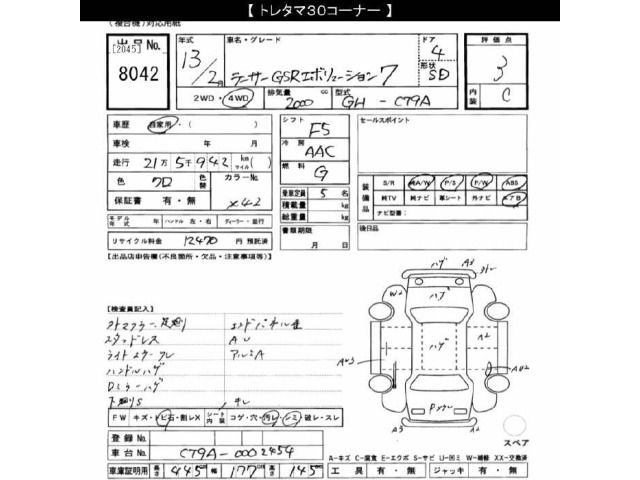 【 トレタマ30コーナー 】
(複合機)対応用紙
出品No. [2045] 8042
年式 13/2月 車名・グレード ランサーGSRエボリューション7 ドア 4 形状 SD
2WD・4WD 排気量 2000 cc 型式 GH-CT9A
評価点 3 内装 C
車歴 自家用・( )
車検 年 月
走行 21万5千942 km マイル ( )
色 クロ 色替 カラーNo. X42
保証書 有・無
モデル年式 年 ハンドル 左・右 ディーラー・並行
リサイクル料金 12470 円 預託済
シフト F5
冷房 AAC
燃料 G
乗車定員 5 名
積載量 kg
総重量 kg
書類期限 月 日
セールスポイント
装備品 S/R 純A/W P/S P/W ABS
純TV 純ナビ 革シート 外ナビ エアB
ナビ型番:
後日品
【出品店申告欄(不良箇所・欠品・注意事項等)】
【検査員記入】
スタッドレス AU
ライトスケークレ アルミA
ハンドルハゲ
Dミラーハゲ
下廻りS
FW キズ・トビ石・割レX シート内装 コゲ・穴・汚レ・シミ・破レ・スレ キレ
登録No.
車台No. CT9A-0002454
車庫証明用 長さ 445 幅 177 高さ 145
工具 有・無 ジャッキ 有・無
A-キズ C-腐食 E-エクボ S-サビ U-凹ミ W-補修 XX-交換済
スペア
ハゲ A3
W2 ハゲ
ハゲ A2
AU3 AU2
A3 A2